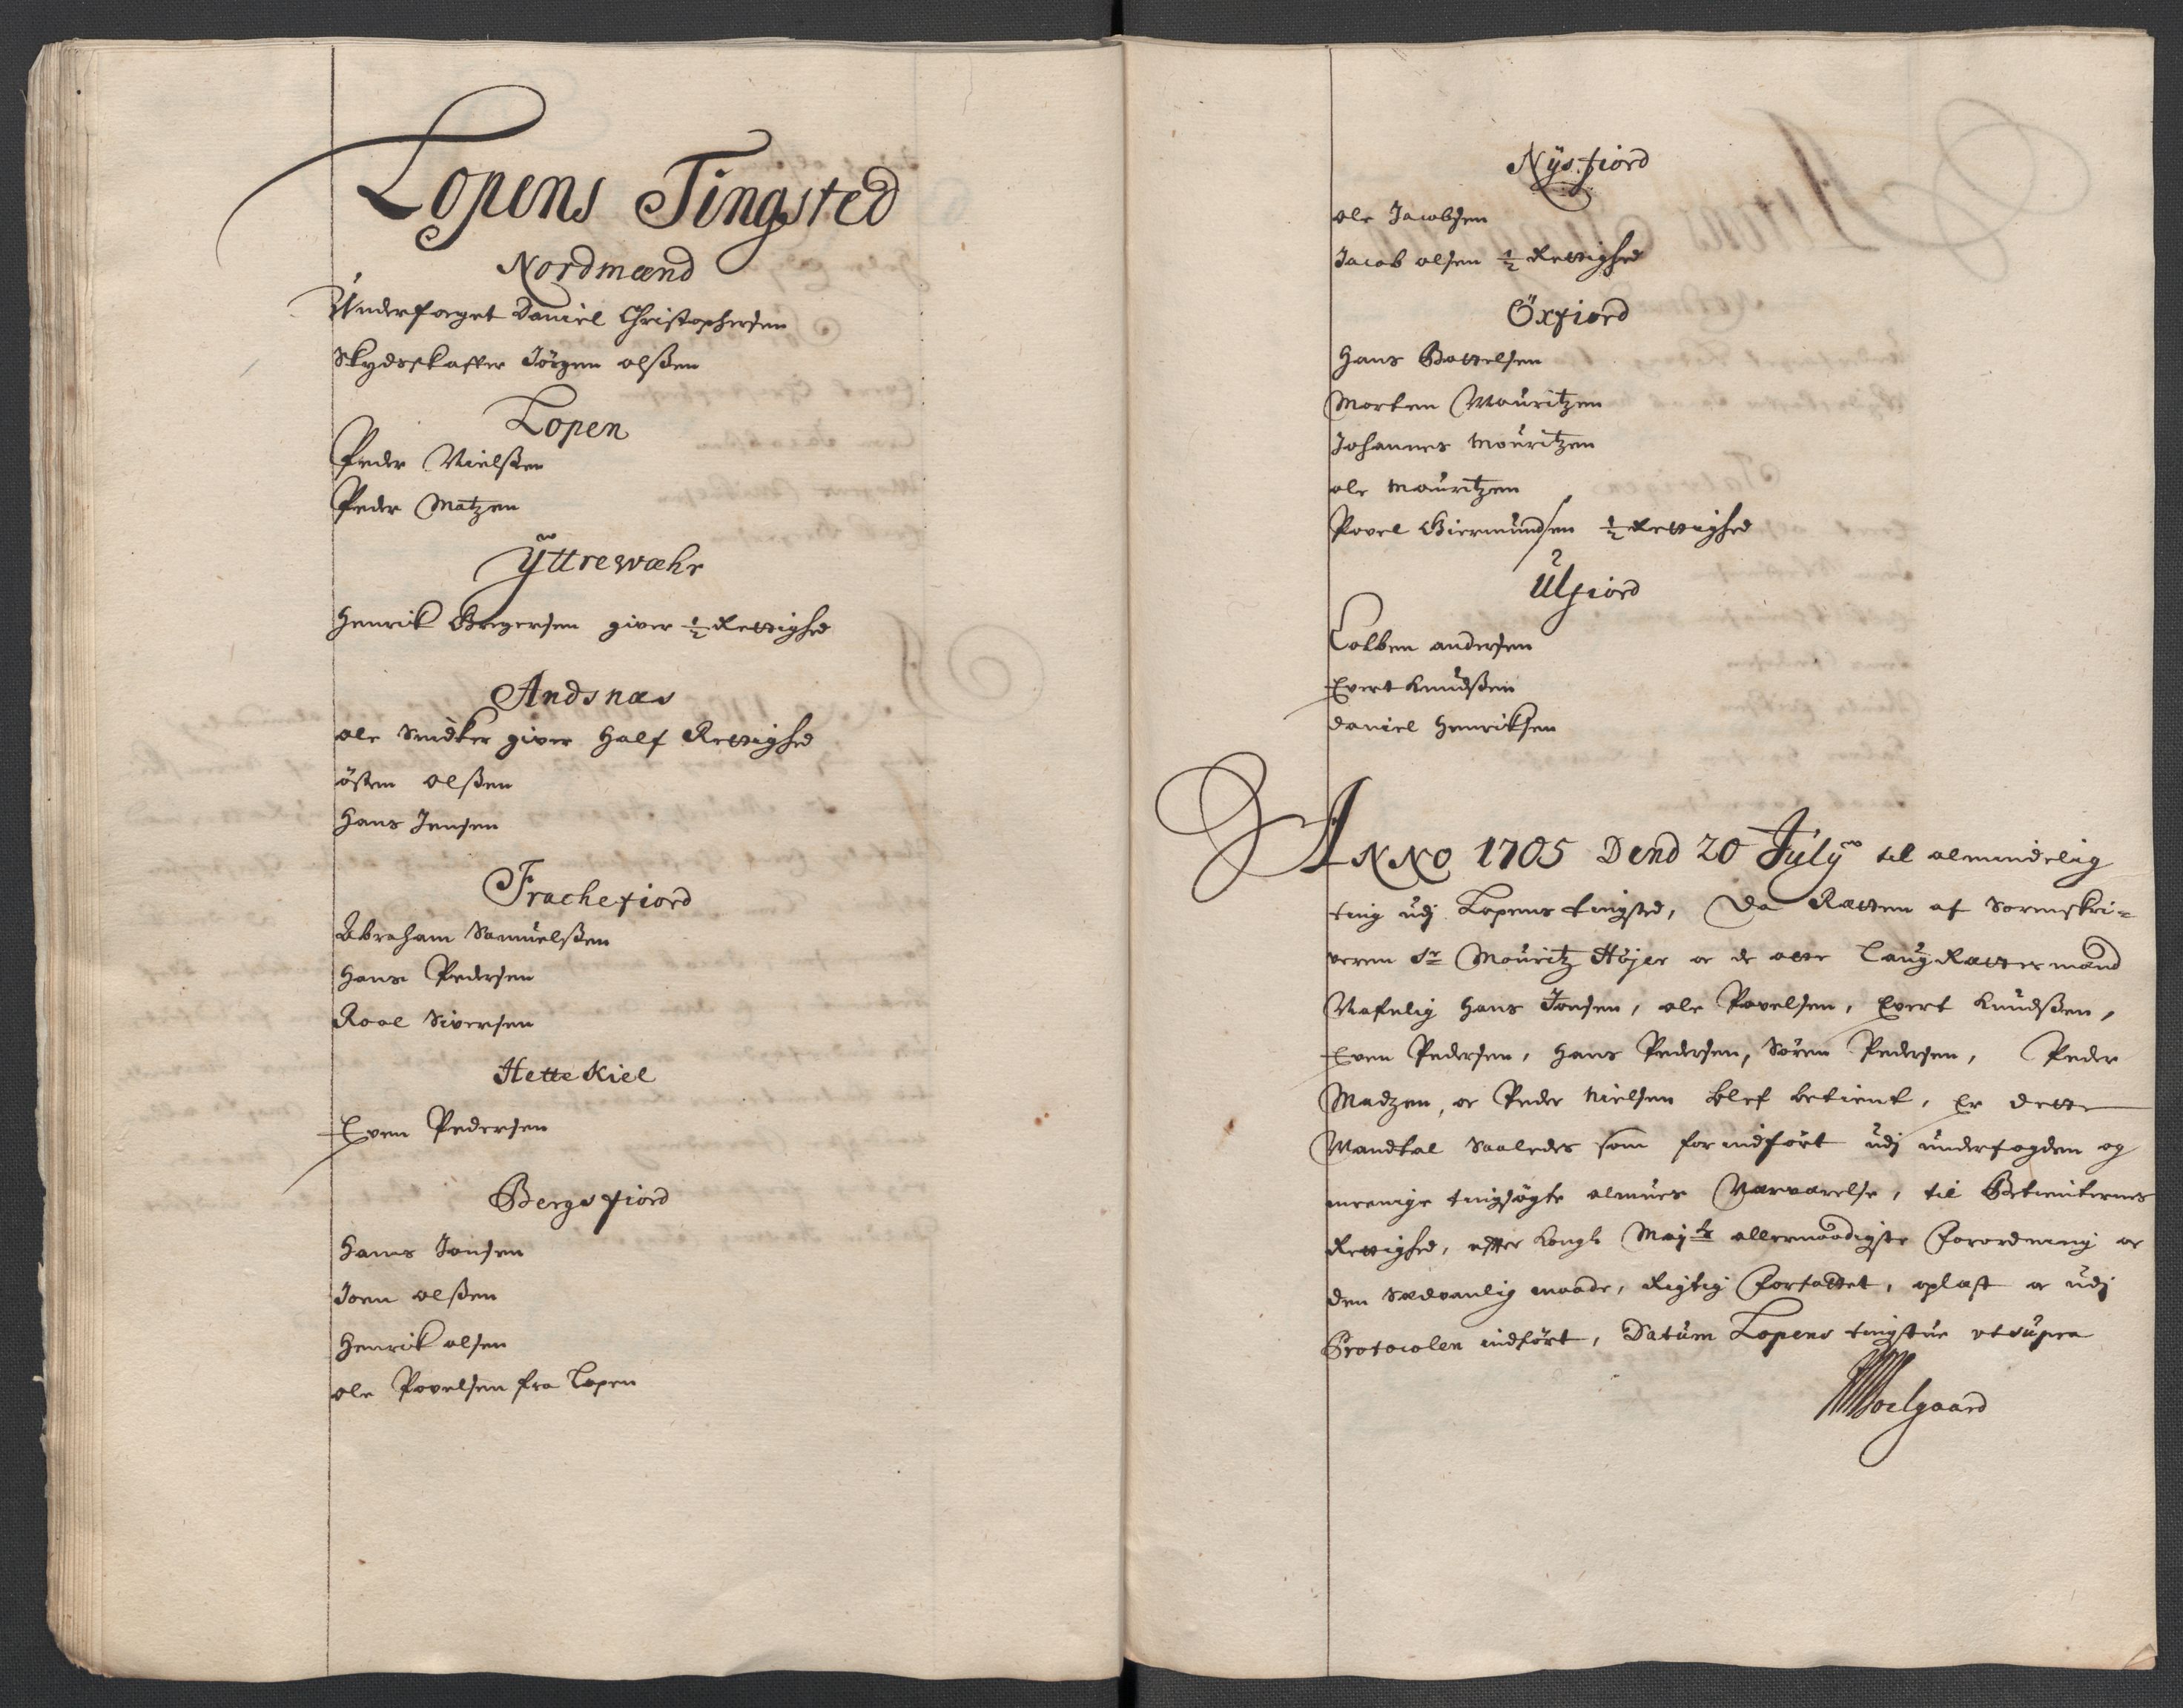 Lopens Tingsted
Nordmænd
Underfoget Daniel Christophersen
Skydsskaffer Jörgen olsßen
Lopen
Peder Nielsßen
Peder Matzen
Ÿttrewæhr
Henrik Gregersen giver ½ Rettighed
Andsnæs
ole Snidker giver Half Rettighed
östen olsßen
Hans Jensen
Frachefiord
Abraham Samuelsßen
Hans Pedersen
Roal Siversen
Hettekiel
Even Pedersen
Bergsfiord
Hans Jonsen
Joen olsßen
Henrik olsen
ole Povelsen fra Lopen
Nÿsfiord
ole Jacobsen
Jacob olsen ½ Rettighed
Öxfiord
Hans Bottelsen
Morten Mouritzen
Johannes Mouritzen
ole Mouritzen
Povel Giermundsen ½ Rettighed
Ulfiord
Colben andersen
Evert Knudsßen
Daniel Henriksen
Anno 1705 Dend 20 Julÿ til almindelig
ting udj Lopens tingsted, Da Retten af Sorenskri-
veren Sr Mouritz Höjer oc de otte Laug Rettes mænd
Nafnlig Hans Jonsen, ole Povelsen, Evert Knudsßen,
Even Pedersen, Hans Pedersen, Sören Pedersen, Peder
Madzen, oc Peder Nielsen blef betient, Er dette
Mandtal Saaledes som for indfört udj underfogden og
menige tingsögte almues Nærværelse, til Betienternes
Rettighed, effter Kongl Mayts allernaadigste Forordning oc
den Sædvanlig maade, Rigtig Forfattet, oplæst oc udj
Protocolen indfört, Datum Lopens tingstue ut supra
Soelgaard